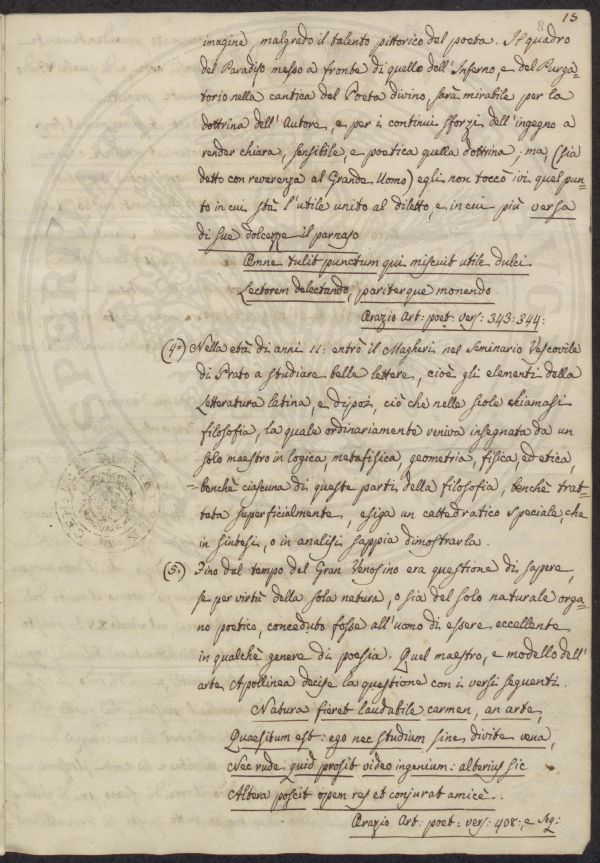 13
imagine, malgrado il talento pittorico del poeta. Il quadro
del Paradiso messo a fronte di quello dell'Inferno, e del Purga=
torio nella cantica del Poeta divino, sarà mirabile per la
dottrina dell'Autore, e per i continui sforzi dell'ingegno a
render chiara, sensibile, e poetica quella dottrina; ma, (sia
detto con reverenza al Grande Uomo) egli non toccò ivi quel pun=
to in cui stà l'utile unito al diletto, e in cui più versa
di sue dolcezze il parnaso
Omne tulit punctum qui miscuit utile dulci
Lectorem delectando, pariterque monendo.
Orazio Art: poet: vers: 343: 344:
(4.) Nella età di anni 11: entrò il Magheri nel Seminario Vescovile
di Prato a studiare belle lettere, cioè gli elementi della
Letteratura latina, e dipoi, ciò che nelle scole chiamasi
filosofia, la quale ordinariamente veniva insegnata da un
solo maestro in logica, metafisica, geometria, fisica, ed etica,
=benchè ciascuna di queste parti della filosofia, benchè trat=
tata superficialmente, esiga un cattedratico speciale, che
in sintesi, o in analisi sappia dimostrarla.
(5.) Fino dal tempo del Gran Venosino era questione di sapere,
se per virtù della sola natura, o sia del solo naturale orga=
no poetico, conceduto fosse all'uomo di essere eccellente
in qualche genere di poesia. Quel maestro, e modello dell'
arte Apollinea decise la questione con i versi seguenti.
Natura fieret laudabile carmen, an arte,
Quaesitum est: ego nec studium sine divite vena,
Nec rude quid prosit video ingenium: alterius sic
Altera poscit opem res et conjurat amicè.
Orazio Art: poet: vers: 408: e seg: